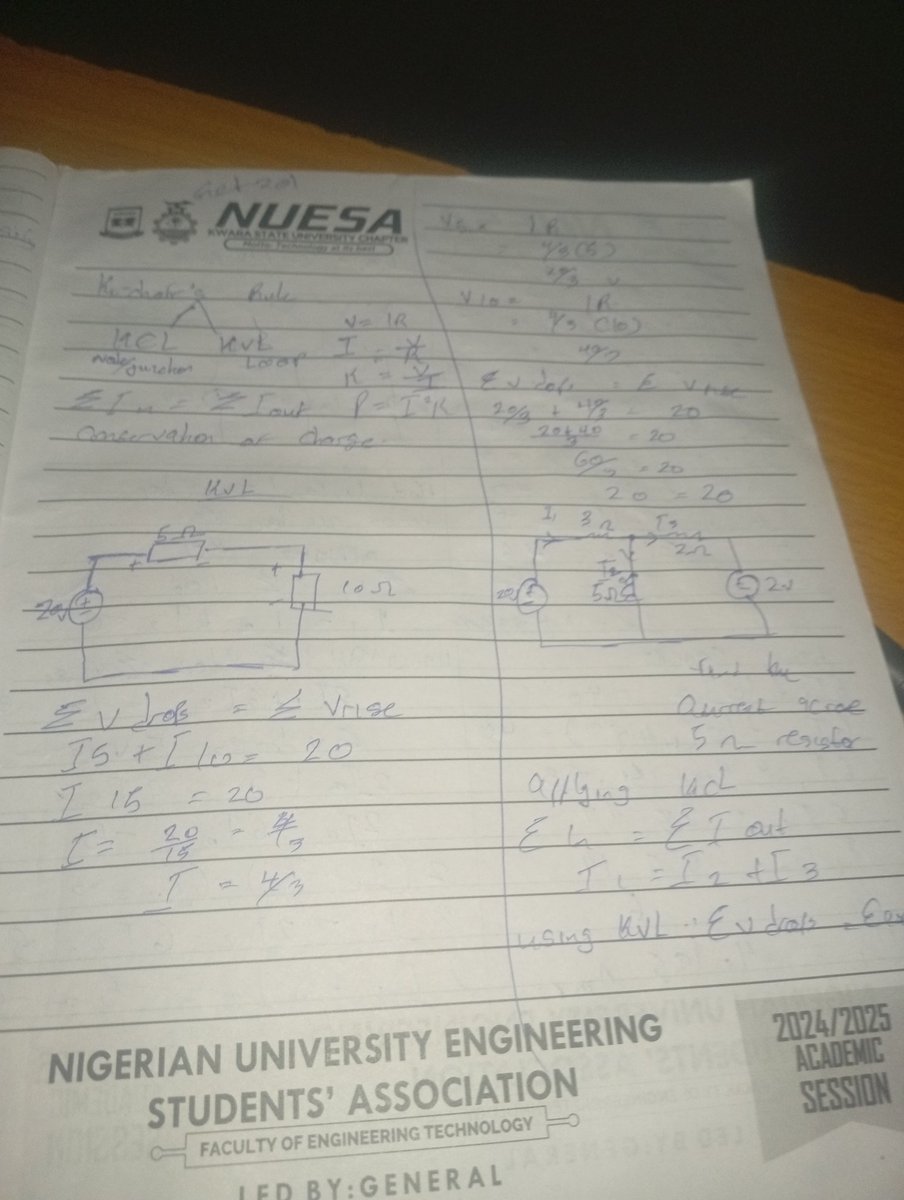 NUESA
KWARA STATE UNIVERSITY CHAPTER
Rule
KCL KVL
Loop
V = IR
I = V/R
R = V/I
Σ I in = Σ I out P = I²R
Conservation of Charge
KVL
5Ω
10Ω
20v
Σ V drops = Σ Vrise
I5 + I10 = 20
I 15 = 20
I = 20/15 = 4/3
I = 4/3
IR
4/3 (5)
20/3 v
V10 = IR
= 4/3 (10)
40/3
Σ v drops = Σ Vrise
20/3 + 40/3 = 20
20+40/3 = 20
60/3 = 20
20 = 20
I1 3Ω I3
2Ω
I2
5Ω
20v
2v
Current
5Ω resistor
applying KCL
Σ In = Σ I out
I1 = I2 + I3
using KVL : Σ v drops =
NIGERIAN UNIVERSITY ENGINEERING
STUDENTS' ASSOCIATION
FACULTY OF ENGINEERING TECHNOLOGY
LED BY:GENERAL
2024/2025
ACADEMIC
SESSION